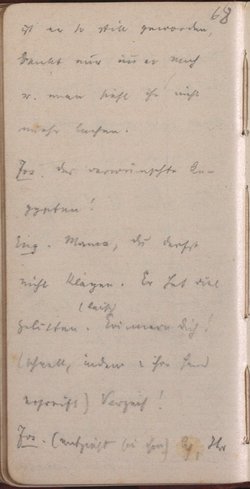 68
ist er so still geworden
denkt nur immer nach
u. man sieht ihn nicht
mehr lachen.
Jos. Der verwünschte
!
Eug. Mama, du darfst
nicht klagen. Er hat viel
(leise)
gelitten. Erinnere Dich!
(schnell, indem i ihre Hand
ergreift) Verzeih!
Jos. (entzieht sie ihm)